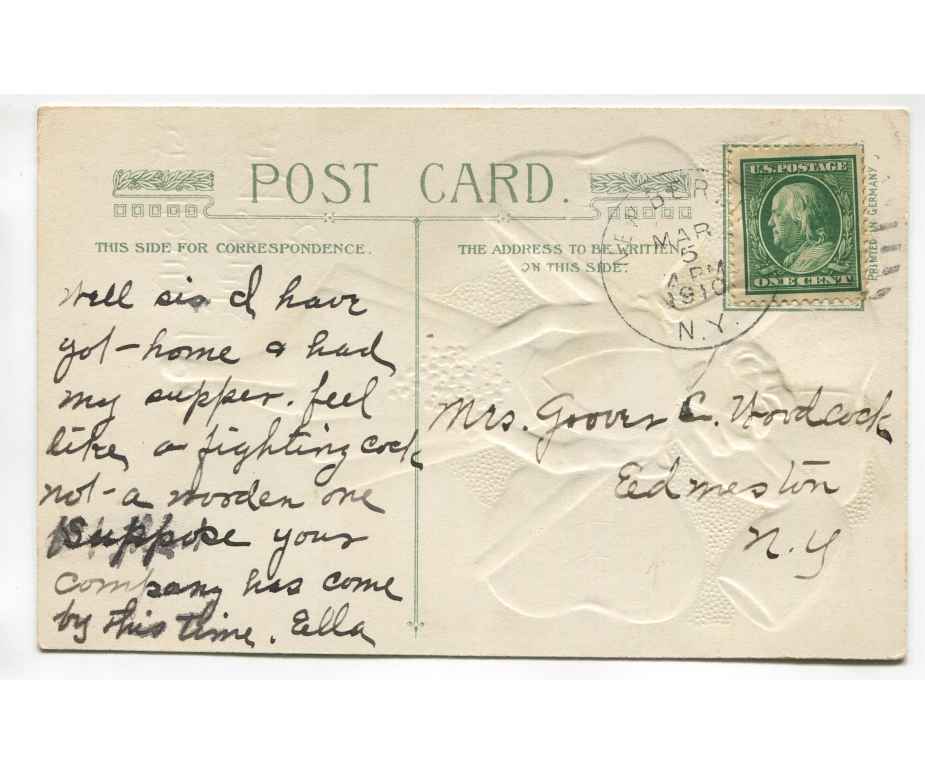 POST CARD.
THIS SIDE FOR CORRESPONDENCE.
THE ADDRESS TO BE WRITTEN
ON THIS SIDE.
U.S. POSTAGE
ONE CENT
PRINTED IN GERMANY
MAR
5
1910
N.Y.
Well sis I have
got home & had
my supper. feel
like a fighting cock
not a wooden one
Suppose your
company has come
by this time. Ella
Mrs. Groover C. Woodcock
Edmeston
N.Y